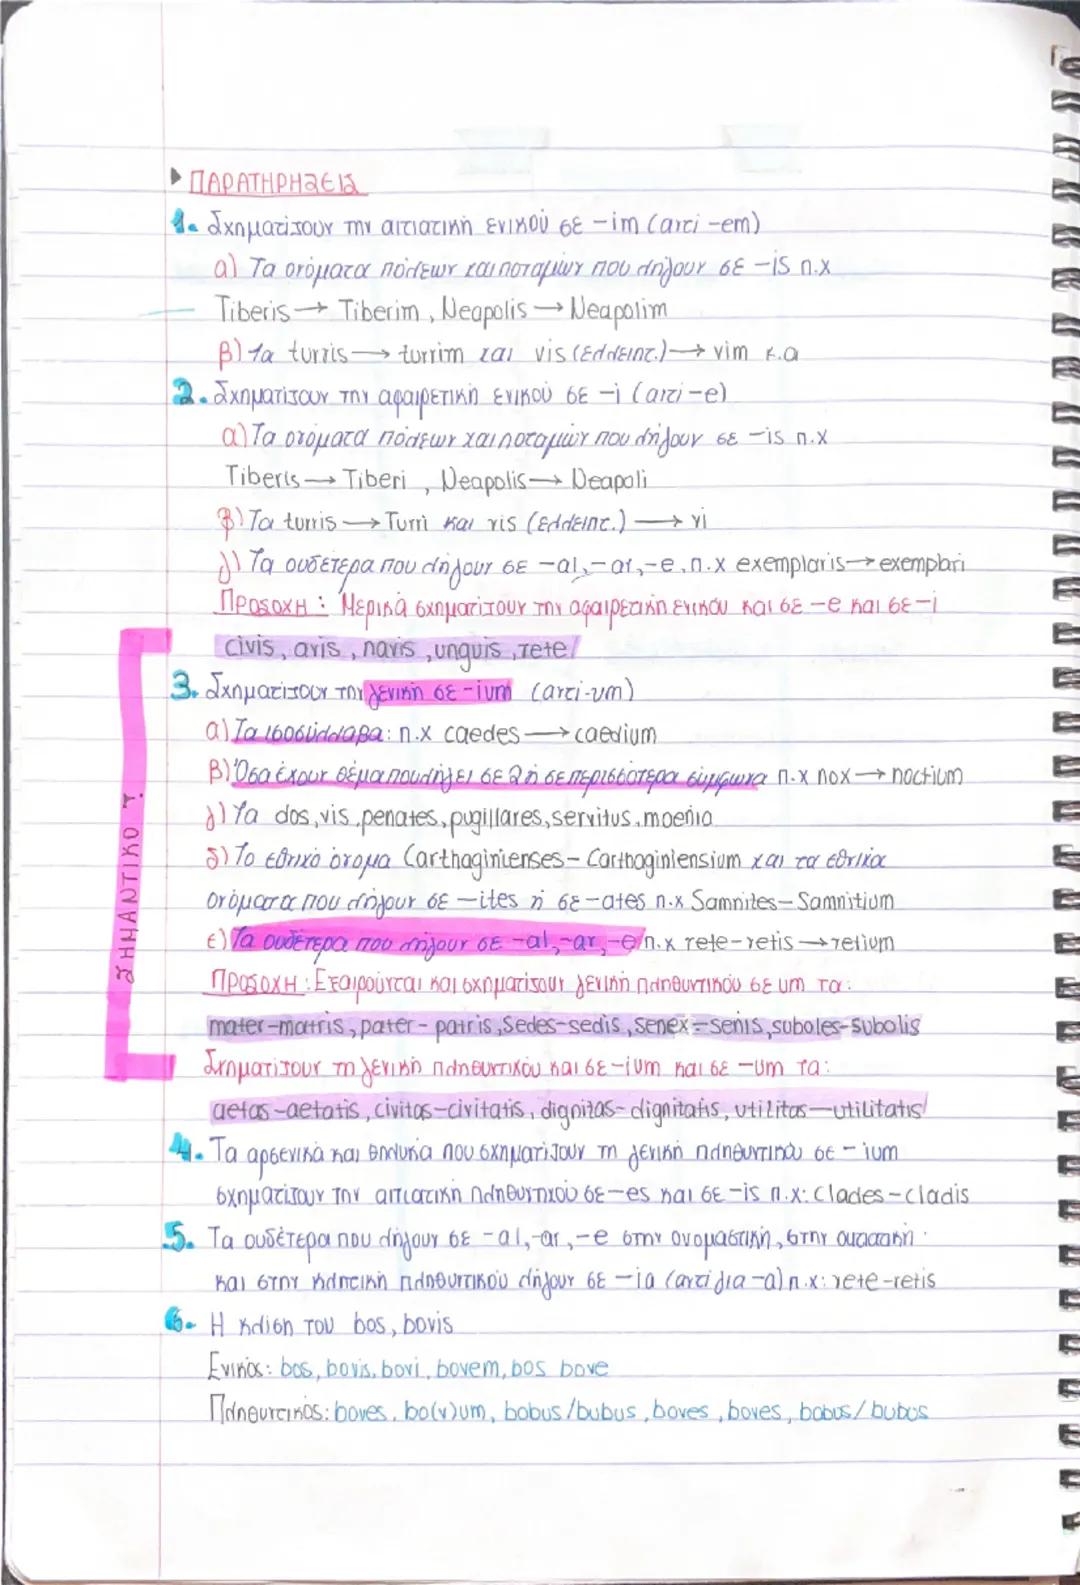 ▸ ΠΑΡΑΤΗΡΗΣΕΙΣ
1. Σχηματίζουν την αιτιατική ενικού σε -im (αντί -em)
α) Τα ονόματα πόλεων και ποταμών που λήγουν σε -is π.χ
Tiberis → Tiberim, Neapolis → Neapolim
β) Τα turris → turrim και vis (ελλειπτ.) → vim κ.α
2. Σχηματίζουν την αφαιρετική ενικού σε -i (αντί -e)
α) Τα ονόματα πόλεων και ποταμών που λήγουν σε -is π.χ
Tiberis → Tiberi, Neapolis → Neapoli
β) Τα turris → Turri και vis (ελλειπτ.) → vi
γ) Τα ουδέτερα που λήγουν σε -al, -ar, -e. π.χ exemplaris → exemplari
Προσοχή: Μερικά σχηματίζουν την αφαιρετική ενικού και σε -e και σε -i
civis, avis, navis, unguis, rete
3. Σχηματίζουν την γενική σε -ium (αντί -um)
α) Τα ισοσύλλαβα: π.χ caedes → caedium
β) Όσα έχουν θέμα που λήγει σε 2 ή σε περισσότερα σύμφωνα π.χ nox → noctium
γ) Τα dos, vis, penates, pugillares, servitus, moenia
δ) Το εθνικό όνομα Carthaginienses - Carthaginiensium και τα εθνικά
ονόματα που λήγουν σε -ites ή σε -ates π.χ Samnites - Samnitium
ε) Τα ουδέτερα που λήγουν σε -al, -ar, -e π.χ rete-retis → retium
Προσοχή: Εξαιρούνται και σχηματίζουν γενική πληθυντικού σε um τα:
mater-matris, pater-patris, sedes-sedis, senex-senis, suboles-subolis
Σχηματίζουν τη γενική πληθυντικού και σε -ium και σε -um τα:
aetas-aetatis, civitas-civitatis, dignitas-dignitatis, utilitas-utilitatis
ΣΗΜΑΝΤΙΚΟ
4. Τα αρσενικά και θηλυκά που σχηματίζουν τη γενική πληθυντικού σε -ium
σχηματίζουν την αιτιατική πληθυντικού σε -es και σε -is π.χ: clades-cladis
5. Τα ουδέτερα που λήγουν σε -al, -ar, -e στην ονομαστική, στην αιτιατική
και στην κλητική πληθυντικού λήγουν σε -ia (αντί για -a) π.χ: rete-retis
6. Η κλίση του bos, bovis
Ενικός: bos, bovis, bovi, bovem, bos bove
Πληθυντικός: boves, bo(v)um, bobus/bubus, boves, boves, bobus/bubus